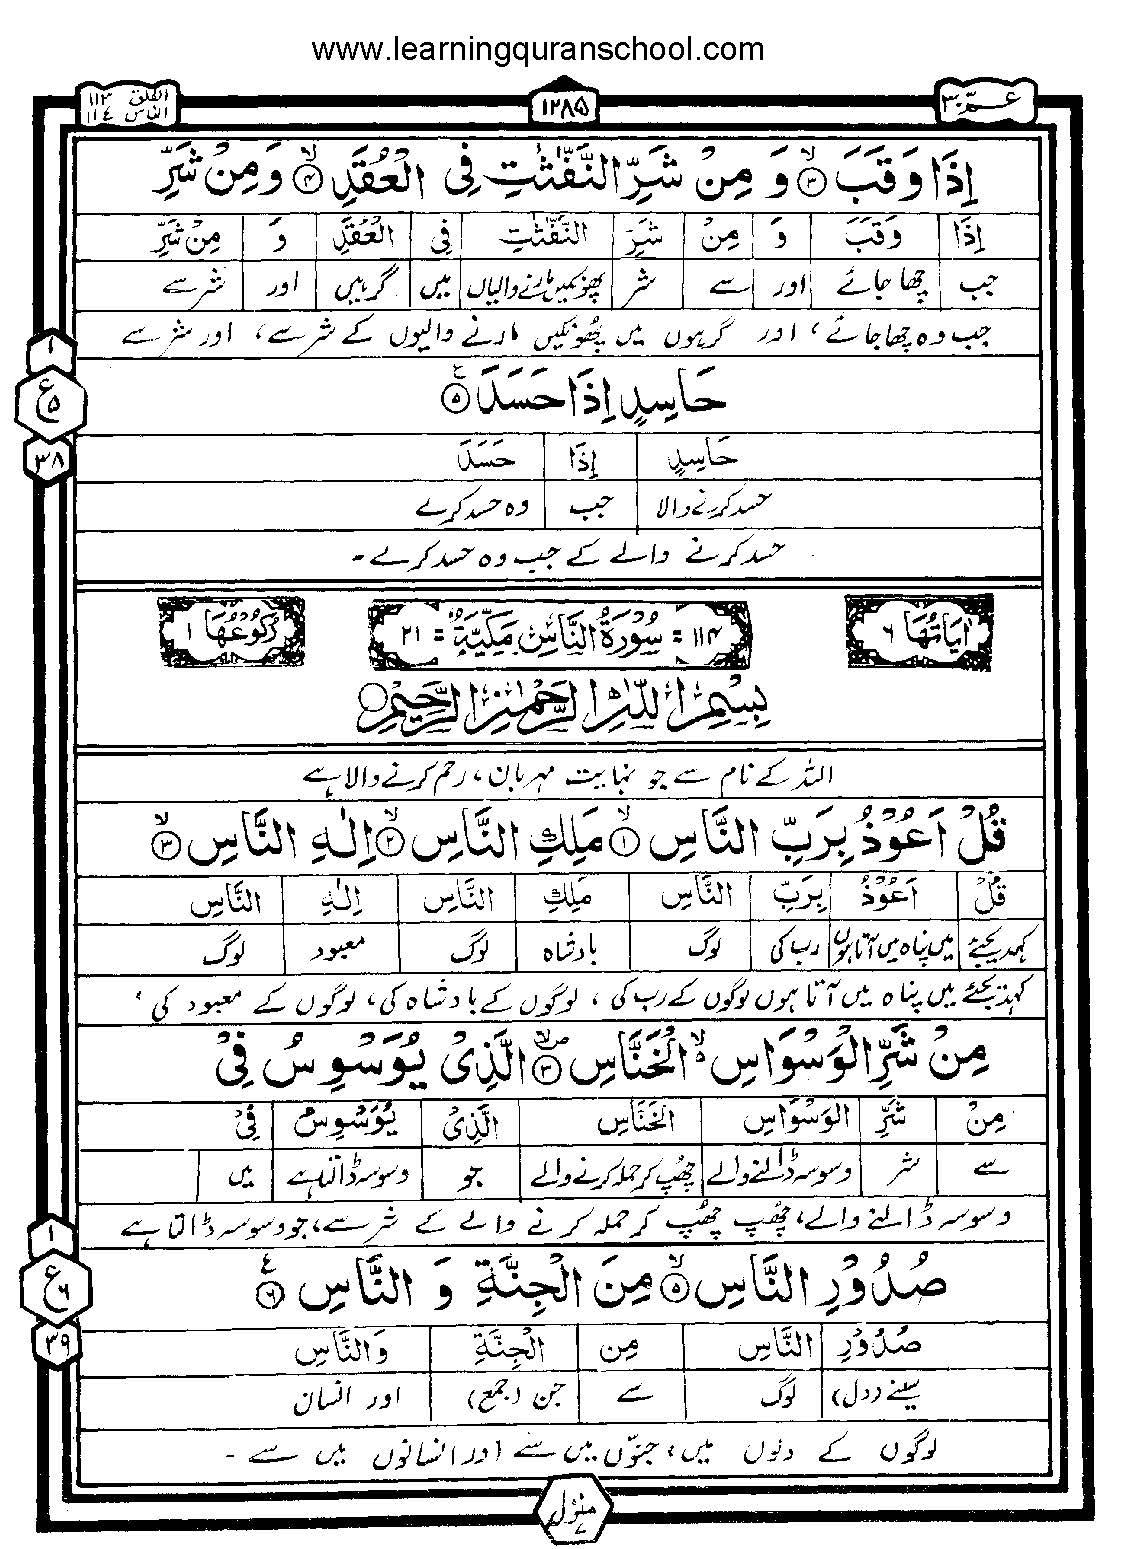 www.learningquranschool.com
عمّ ٣٠
١٢٨۵
الفلق ١١٣
الناس ١١٤
اِذَا وَقَبَ ۙ‏﴿۳﴾ وَ مِنْ شَرِّ النَّفّٰثٰتِ فِی الْعُقَدِ ۙ‏﴿۴﴾ وَ مِنْ شَرِّ
اِذَا وَقَبَ وَ مِنْ شَرِّ النَّفّٰثٰتِ فِی الْعُقَدِ وَ مِنْ شَرِّ
جب چھا جائے اور سے شر پھونکیں مارنے والیاں میں گرہیں اور شر سے
جب وہ چھا جائے، اور گرہوں میں پُھونکیں مارنے والیوں کے شر سے، اور شر سے
١
ع
۵
٣٨
حَاسِدٍ اِذَا حَسَدَ ﴿۵﴾
حَاسِدٍ اِذَا حَسَدَ
حسد کرنے والا جب وہ حسد کرے
حسد کرنے والے کے جب وہ حسد کرے۔
اٰیَاتُھَا ٦
١١۴ = سُوْرَةُ النَّاسِ مَکِّیَّةٌ = ٢١
رُکُوْعُھَا ١
بِسْمِ اللّٰهِ الرَّحْمٰنِ الرَّحِیْمِ
اللہ کے نام سے جو نہایت مہربان، رحم کرنے والا ہے
قُلْ اَعُوْذُ بِرَبِّ النَّاسِ ۙ‏﴿۱﴾ مَلِكِ النَّاسِ ۙ‏﴿۲﴾ اِلٰهِ النَّاسِ ۙ‏﴿۳﴾
قُلْ اَعُوْذُ بِرَبِّ النَّاسِ مَلِكِ النَّاسِ اِلٰهِ النَّاسِ
کہہ دیجئے میں پناہ میں آتا ہوں رب کی لوگ بادشاہ لوگ معبود لوگ
کہہ دیجئے میں پناہ میں آتا ہوں لوگوں کے رب کی، لوگوں کے بادشاہ کی، لوگوں کے معبود کی،
مِنْ شَرِّ الْوَسْوَاسِ ۙ۬ الْخَنَّاسِ ۪ۙ‏﴿۴﴾ الَّذِیْ یُوَسْوِسُ فِیْ
مِنْ شَرِّ الْوَسْوَاسِ الْخَنَّاسِ الَّذِیْ یُوَسْوِسُ فِیْ
سے شر وسوسہ ڈالنے والے چُھپ کر حملہ کرنے والے جو وسوسہ ڈالتا ہے میں
وسوسہ ڈالنے والے، چُھپ چُھپ کر حملہ کرنے والے کے شر سے، جو وسوسہ ڈالتا ہے
١
ع
٦
٣٩
صُدُوْرِ النَّاسِ ۙ‏﴿۵﴾ مِنَ الْجِنَّةِ وَ النَّاسِ ﴿۶﴾
صُدُوْرِ النَّاسِ مِنَ الْجِنَّةِ وَالنَّاسِ
سینے (دل) لوگ سے جن (جمع) اور انسان
لوگوں کے دلوں میں، جنّوں میں سے اور انسانوں میں سے۔
منزل ٧